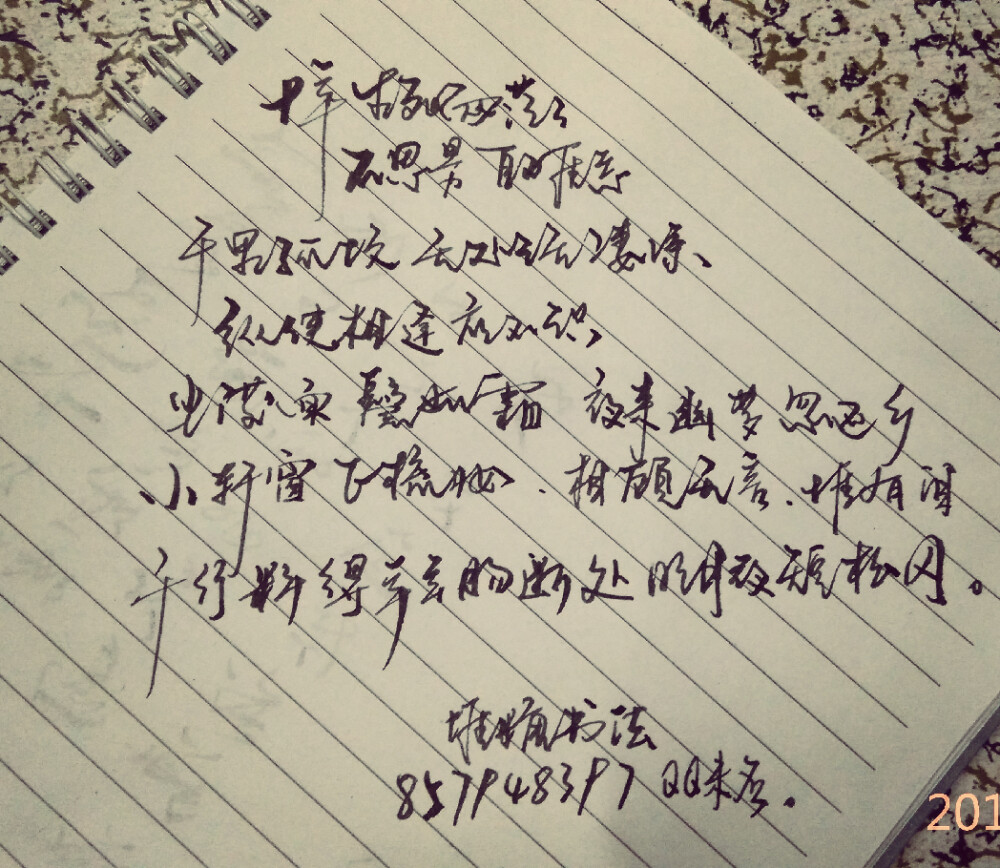 十年生死两茫茫
不思量 自难忘
千里孤坟 无处话凄凉、
纵使相逢应不识,
尘满面 鬓如霜 夜来幽梦忽还乡
小轩窗 正梳妆. 相顾无言. 惟有泪
千行 料得年年肠断处 明月夜短松冈。
书法
857948397 QQ
201